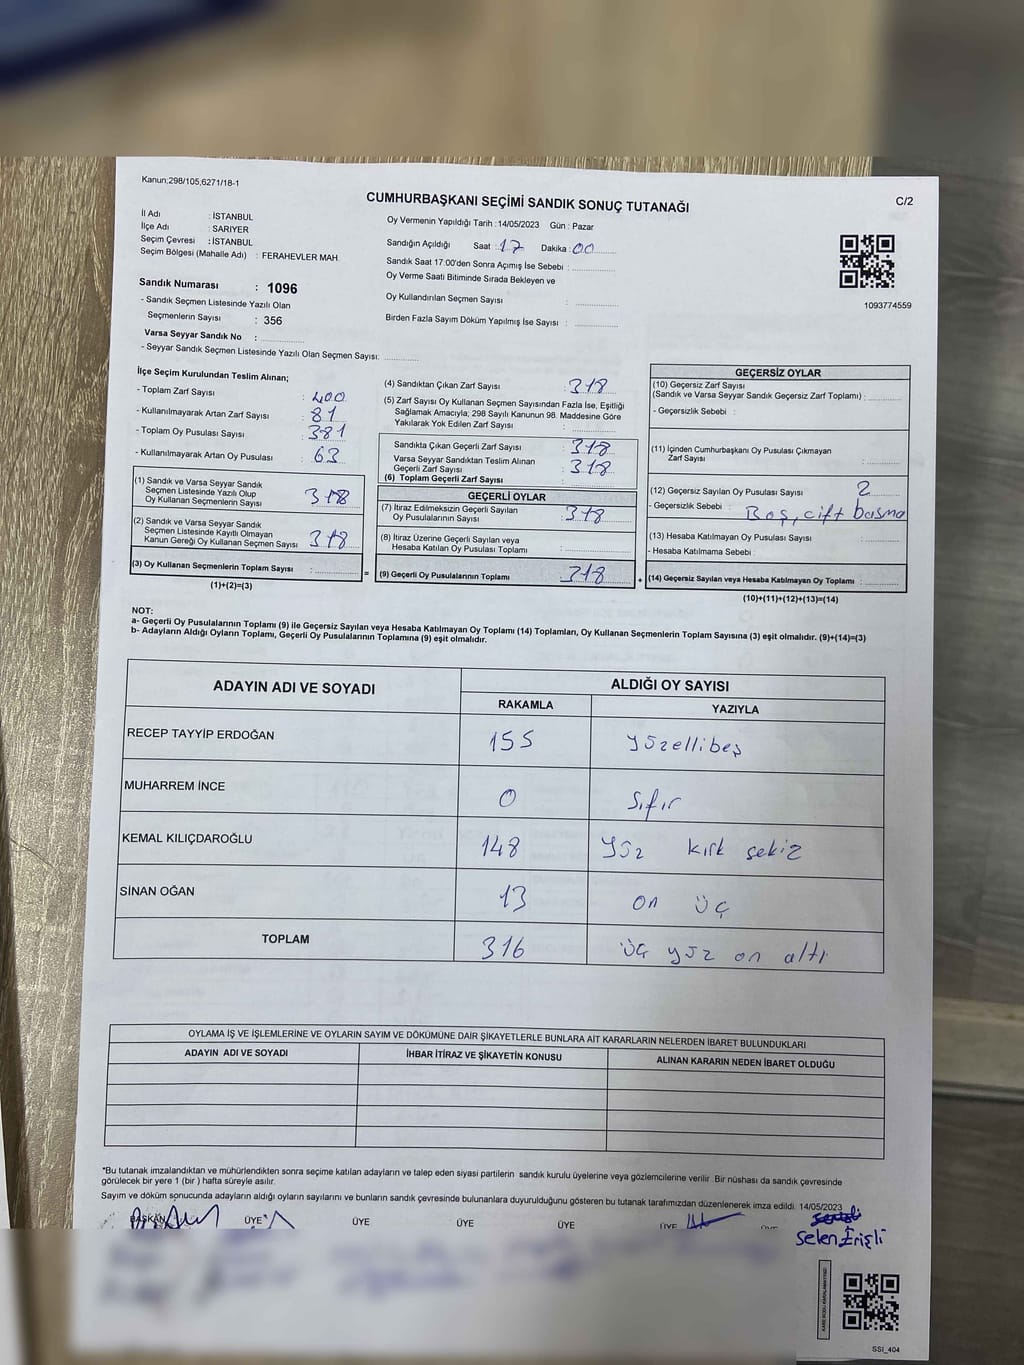 Kanun;298/105;6271/18-1
CUMHURBAŞKANI SEÇİMİ SANDIK SONUÇ TUTANAĞI
C/2
İl Adı : İSTANBUL
İlçe Adı : SARIYER
Seçim Çevresi : İSTANBUL
Seçim Bölgesi (Mahalle Adı) : FERAHEVLER MAH.
Sandık Numarası : 1096
- Sandık Seçmen Listesinde Yazılı Olan
Seçmenlerin Sayısı : 356
Varsa Seyyar Sandık No :
- Seyyar Sandık Seçmen Listesinde Yazılı Olan Seçmen Sayısı:
Oy Vermenin Yapıldığı Tarih :14/05/2023 Gün : Pazar
Sandığın Açıldığı Saat : 17 Dakika : 00
Sandık Saat 17:00'den Sonra Açımış İse Sebebi :
Oy Verme Saati Bitiminde Sırada Bekleyen ve
Oy Kullandırılan Seçmen Sayısı :
Birden Fazla Sayım Döküm Yapılmış İse Sayısı :
1093774559
İlçe Seçim Kurulundan Teslim Alınan;
- Toplam Zarf Sayısı : 400
- Kullanılmayarak Artan Zarf Sayısı : 81
- Toplam Oy Pusulası Sayısı : 381
- Kullanılmayarak Artan Oy Pusulası : 63
(1) Sandık ve Varsa Seyyar Sandık
Seçmen Listesinde Yazılı Olup
Oy Kullanan Seçmenlerin Sayısı 318
(2) Sandık ve Varsa Seyyar Sandık
Seçmen Listesinde Kayıtlı Olmayan
Kanun Gereği Oy Kullanan Seçmen Sayısı 318
(3) Oy Kullanan Seçmenlerin Toplam Sayısı :
(1)+(2)=(3)
=
(4) Sandıktan Çıkan Zarf Sayısı : 318
(5) Zarf Sayısı Oy Kullanan Seçmen Sayısından Fazla İse, Eşitliği
Sağlamak Amacıyla; 298 Sayılı Kanunun 98. Maddesine Göre
Yakılarak Yok Edilen Zarf Sayısı :
Sandıkta Çıkan Geçerli Zarf Sayısı : 318
Varsa Seyyar Sandıktan Teslim Alınan
Geçerli Zarf Sayısı : 318
(6) Toplam Geçerli Zarf Sayısı :
GEÇERLİ OYLAR
(7) İtiraz Edilmeksizin Geçerli Sayılan
Oy Pusulalarının Sayısı : 318
(8) İtiraz Üzerine Geçerli Sayılan veya
Hesaba Katılan Oy Pusulası Toplamı :
(9) Geçerli Oy Pusulalarının Toplamı 318
+
GEÇERSİZ OYLAR
(10) Geçersiz Zarf Sayısı
(Sandık ve Varsa Seyyar Sandık Geçersiz Zarf Toplamı) :
- Geçersizlik Sebebi :
(11) İçinden Cumhurbaşkanı Oy Pusulası Çıkmayan
Zarf Sayısı :
(12) Geçersiz Sayılan Oy Pusulası Sayısı : 2
- Geçersizlik Sebebi : Boş, cift basma
(13) Hesaba Katılmayan Oy Pusulası Sayısı :
- Hesaba Katılmama Sebebi :
(14) Geçersiz Sayılan veya Hesaba Katılmayan Oy Toplamı :
(10)+(11)+(12)+(13)=(14)
NOT:
a- Geçerli Oy Pusulalarının Toplamı (9) ile Geçersiz Sayılan veya Hesaba Katılmayan Oy Toplamı (14) Toplamları, Oy Kullanan Seçmenlerin Toplam Sayısına (3) eşit olmalıdır. (9)+(14)=(3)
b- Adayların Aldığı Oyların Toplamı, Geçerli Oy Pusulalarının Toplamına (9) eşit olmalıdır.
ADAYIN ADI VE SOYADI
ALDIĞI OY SAYISI
RAKAMLA YAZIYLA
RECEP TAYYİP ERDOĞAN 155 yüzellibeş
MUHARREM İNCE 0 sıfır
KEMAL KILIÇDAROĞLU 148 yüz kırk sekiz
SİNAN OĞAN 13 on üç
TOPLAM 316 üç yüz on altı
OYLAMA İŞ VE İŞLEMLERİNE VE OYLARIN SAYIM VE DÖKÜMÜNE DAİR ŞİKAYETLERLE BUNLARA AİT KARARLARIN NELERDEN İBARET BULUNDUKLARI
ADAYIN ADI VE SOYADI İHBAR İTİRAZ VE ŞİKAYETİN KONUSU ALINAN KARARIN NEDEN İBARET OLDUĞU
*Bu tutanak imzalandıktan ve mühürlendikten sonra seçime katılan adayların ve talep eden siyasi partilerin sandık kurulu üyelerine veya gözlemcilerine verilir. Bir nüshası da sandık çevresinde
görülecek bir yere 1 (bir ) hafta süreyle asılır.
Sayım ve döküm sonucunda adayların aldığı oyların sayılarını ve bunların sandık çevresinde bulunanlara duyurulduğunu gösteren bu tutanak tarafımızdan düzenlenerek imza edildi. 14/05/2023
BAŞKAN ÜYE ÜYE ÜYE ÜYE ÜYE
Selen Erişli
SSI_404